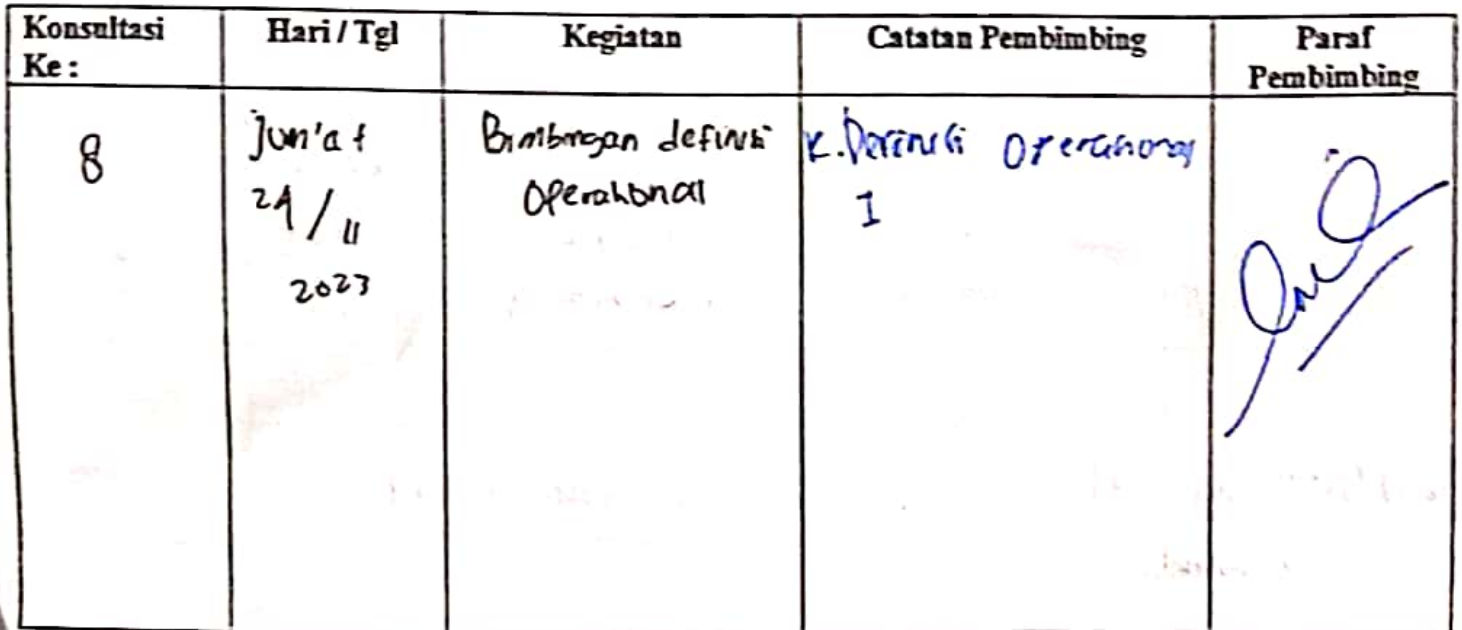 Konsultasi Ke :
Hari / Tgl
Kegiatan
Catatan Pembimbing
Paraf Pembimbing
8
Jum'at
24 / 11
2023
Bimbingan definisi
Operasional
Definisi Operasional
1